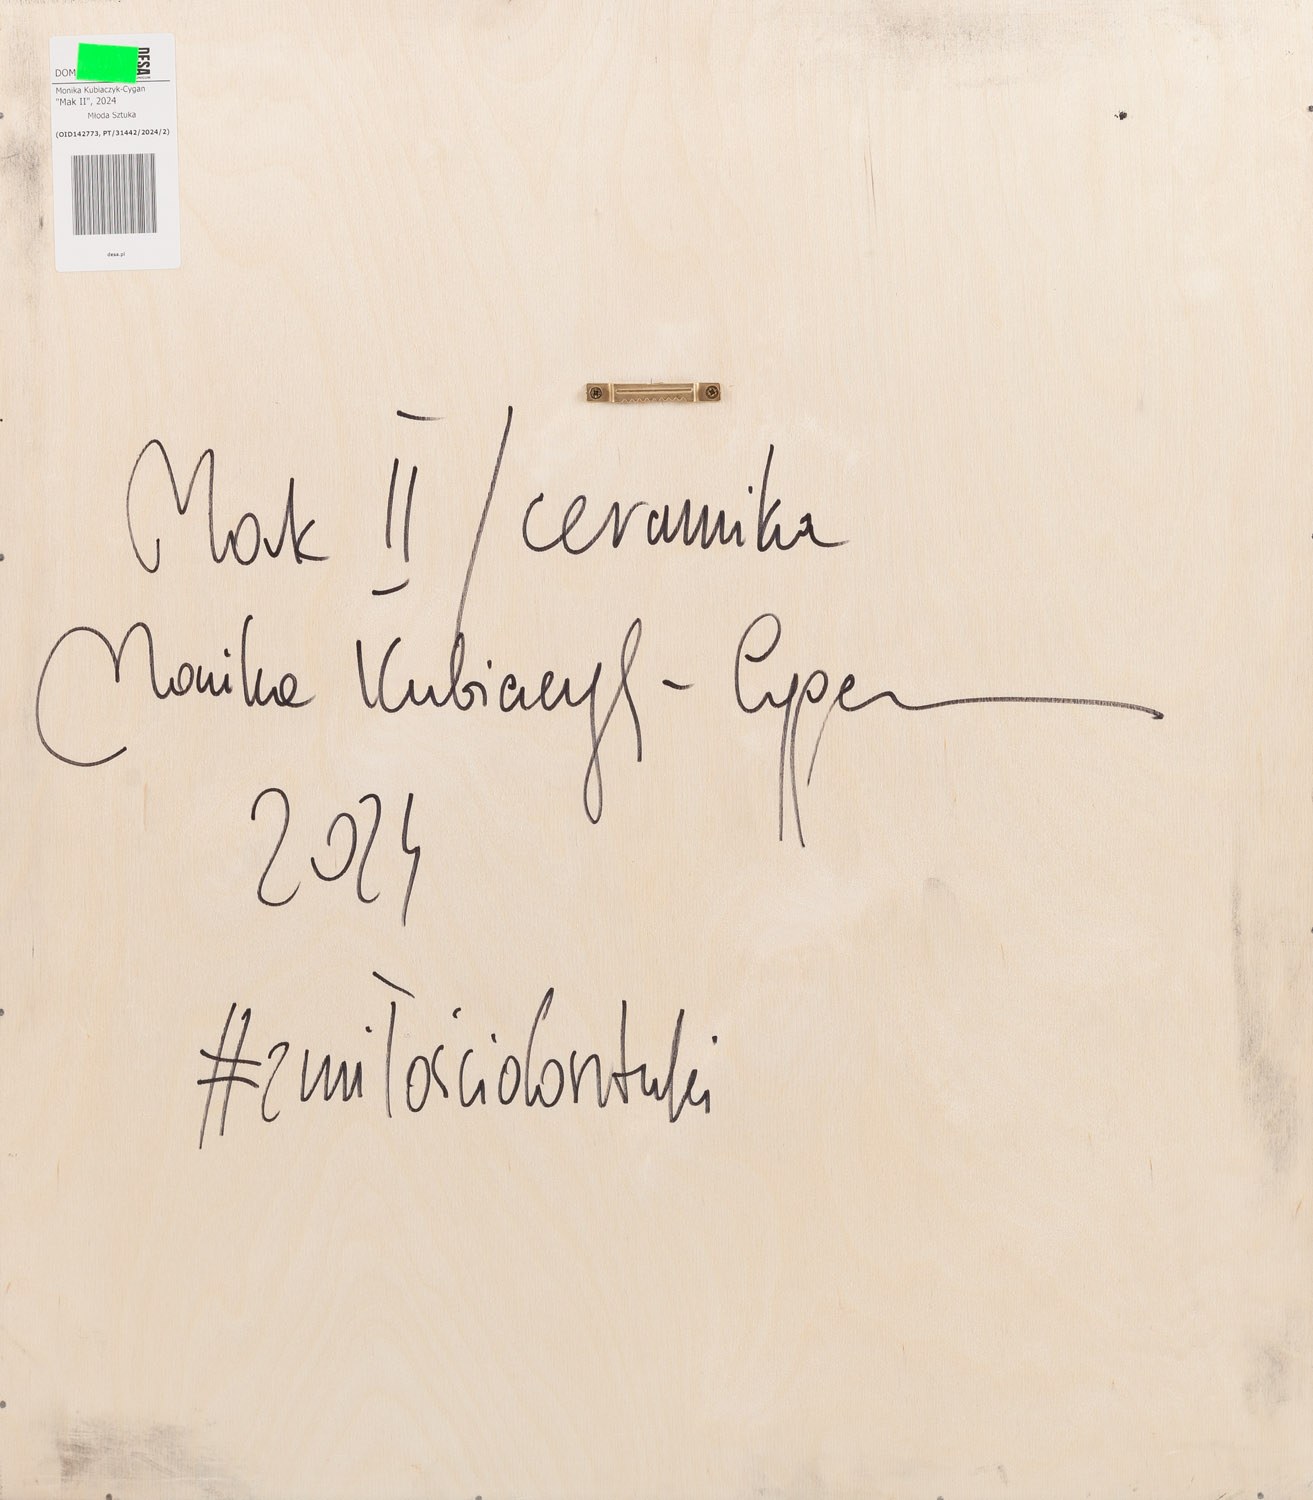 DOM
DESA
Monika Kubiaczyk-Cygan
"Mak II", 2024
Młoda Sztuka
(OID142773, PT/31442/2024/2)
desa.pl
Mak II / ceramika
Monika Kubiaczyk - Cygan
2024
#zmiłościdosztuki